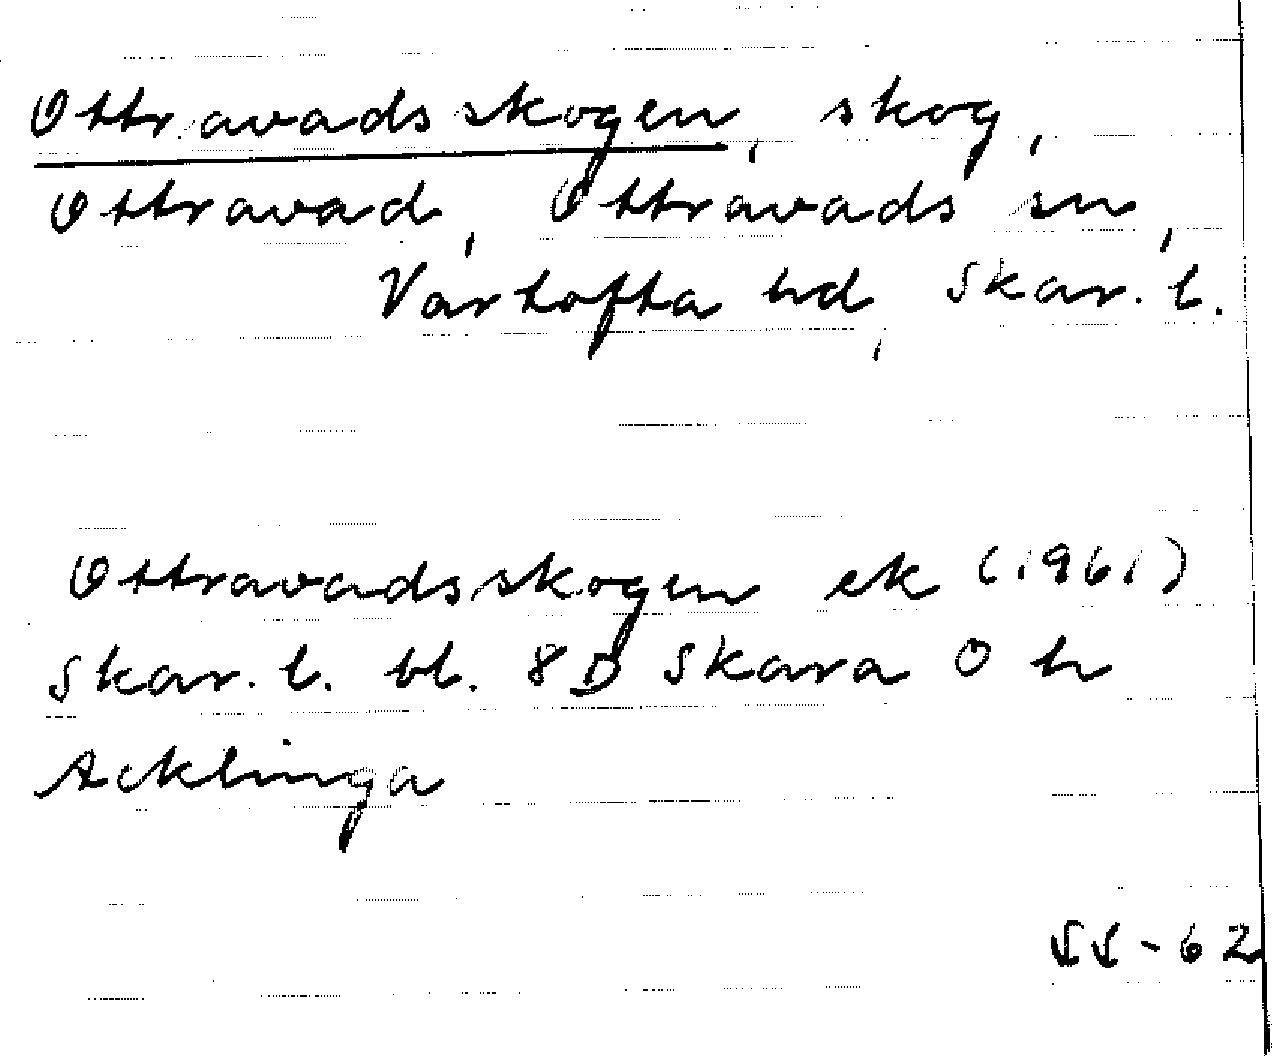 Ottravadsskogen, skog,
Ottravad, Ottravads sn,
Vartofta hd, Skar. l.
Ottravadsskogen ek (1961)
Skar. l. bl. 8D Skara 0 h
Acklinga
SS-62